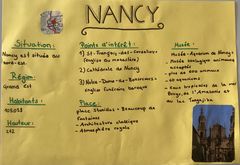 NANCY
Situation:
Nancy est située au
nord-est.
Région:
Grand est
Habitants:
105 058
Hauteur:
212
Points d'intérêt:
1) St-François-des-Cordeliers
(église au monastère)
2) Cathédrale de Nancy
3) Notre-Dame-de-Bonsecours:
église funéraire baroque
Place:
place Stanislas - Beaucoup de
fontaines
- Architecture classique
- Atmosphère royale
Musée:
- Musée-Aquarium de Nancy:
- Musée zoologique
- plus de 600 000
animaux
- 60 aquariums
- Eaux tropicales de la mer
Rouge, de l'Amazonie et
au lac Tanganyika